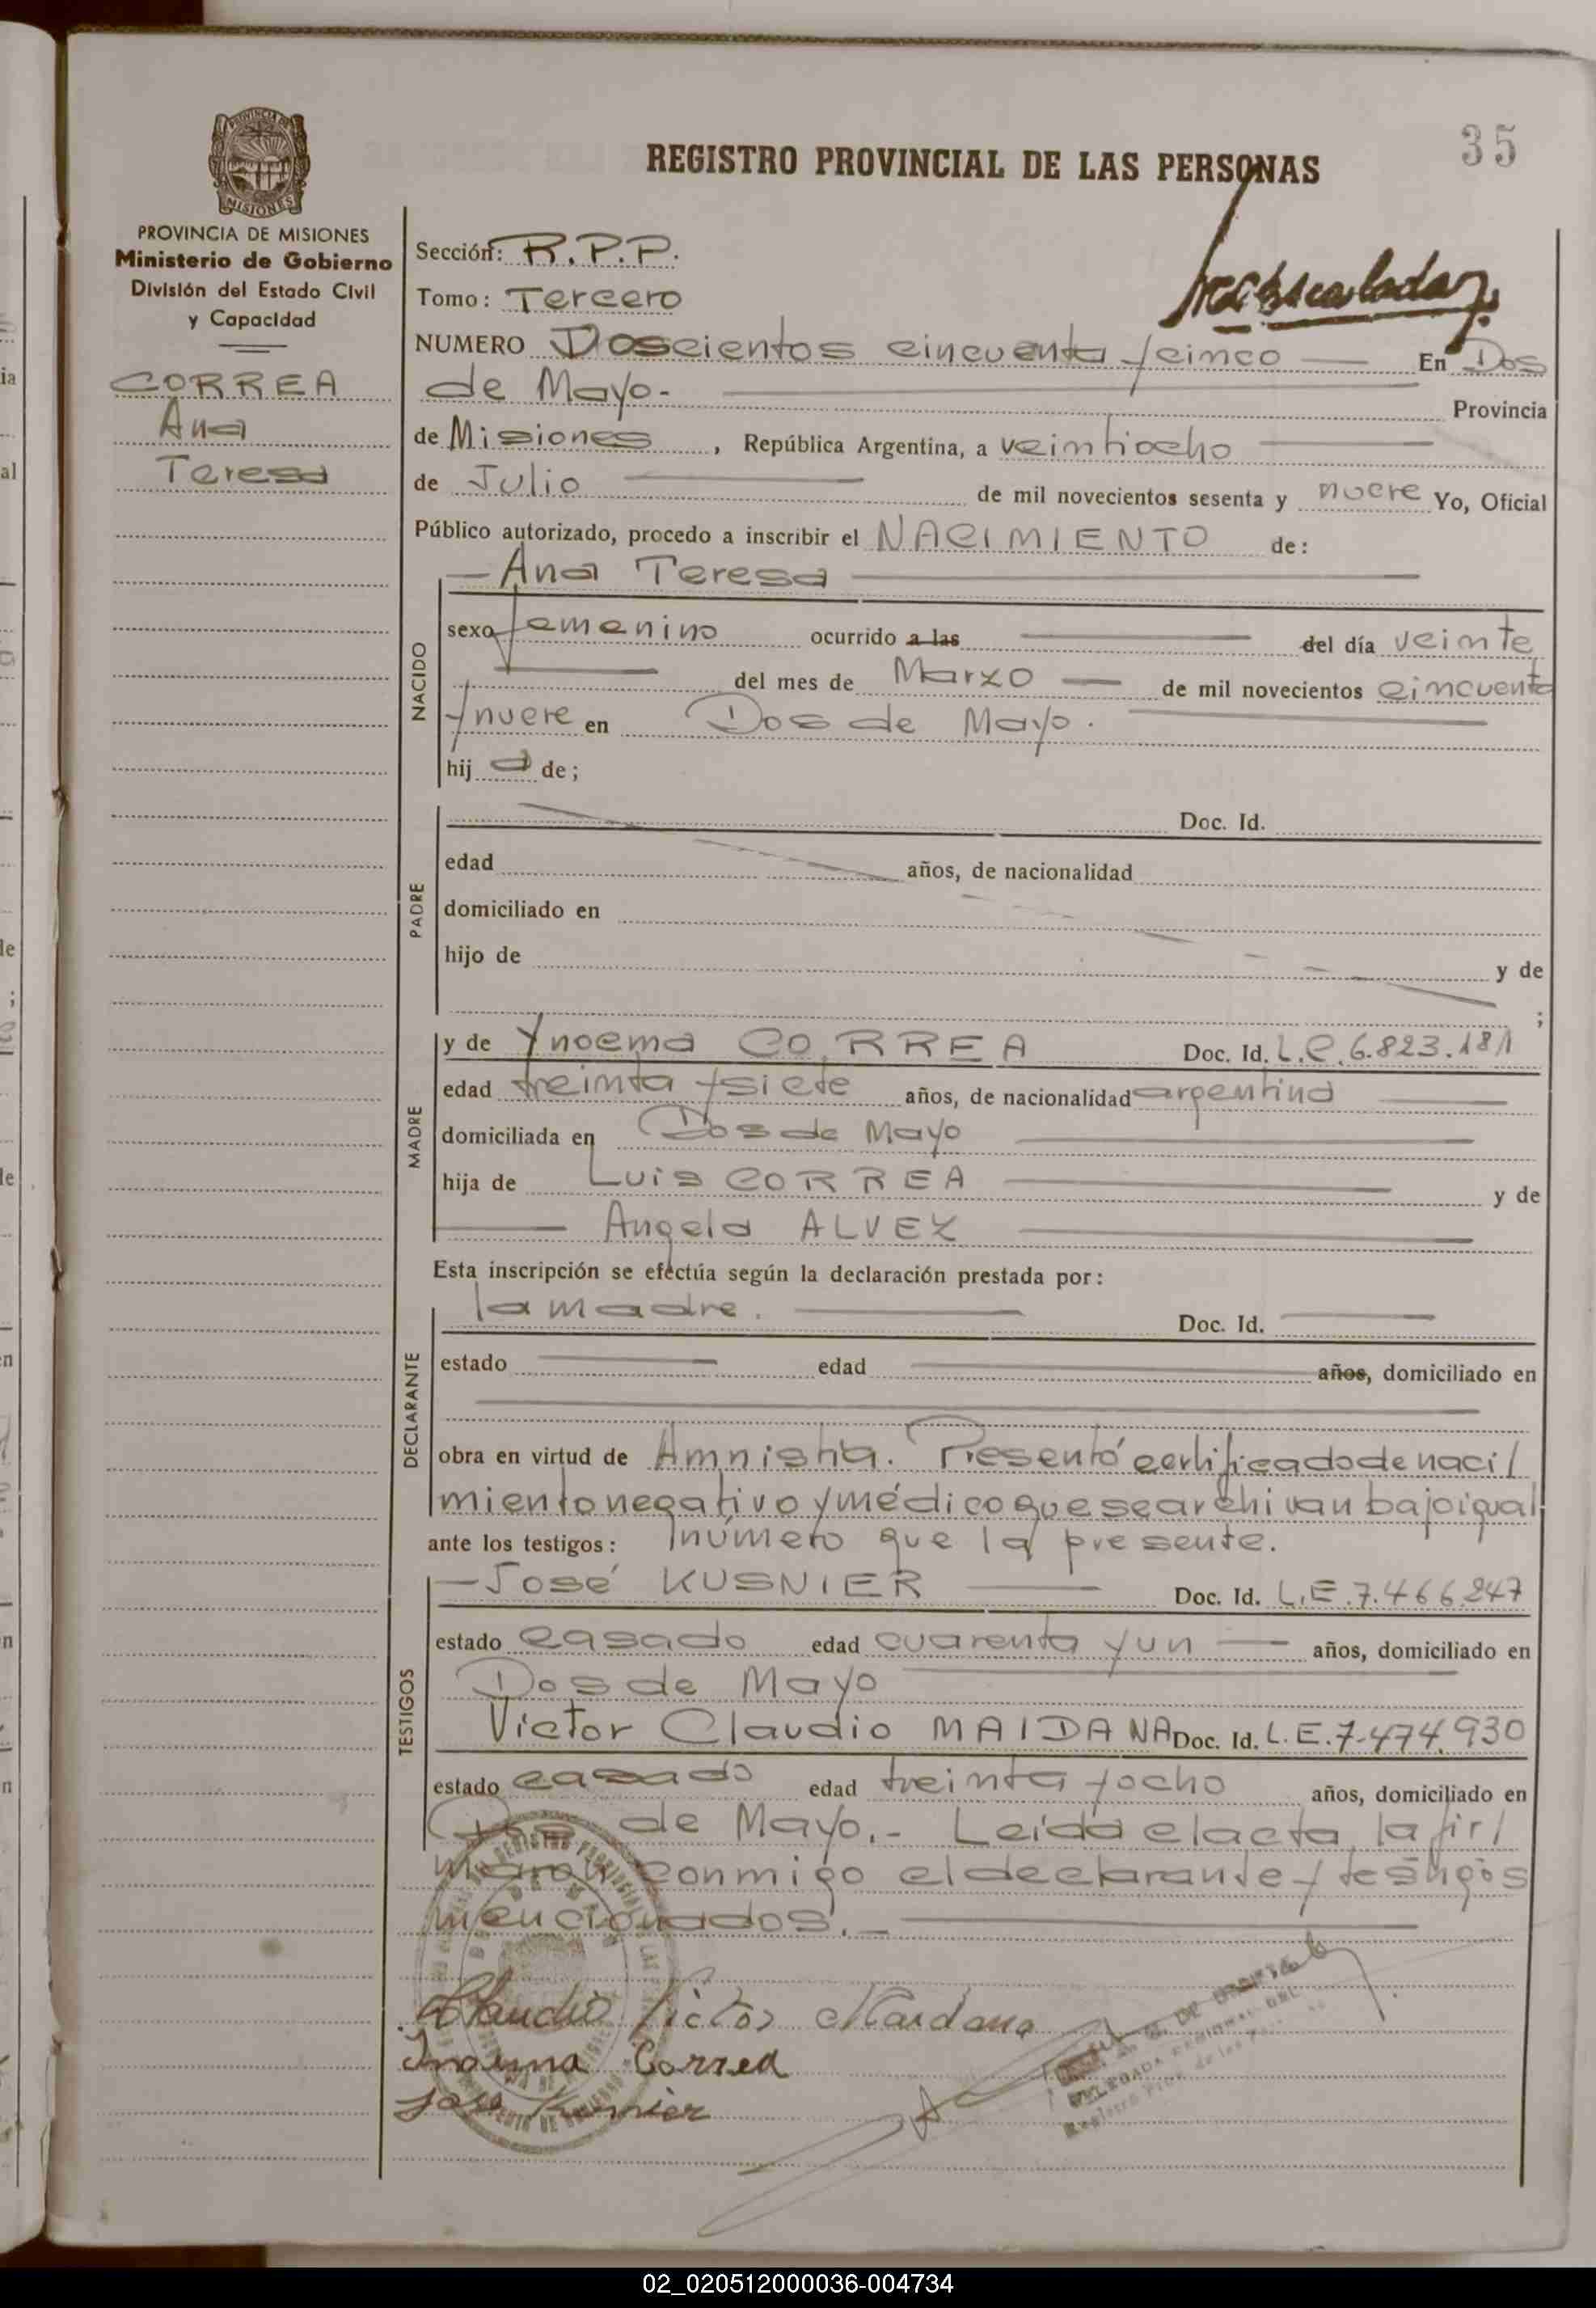 35
REGISTRO PROVINCIAL DE LAS PERSONAS
MISIONES
PROVINCIA DE MISIONES
Ministerio de Gobierno
División del Estado Civil
y Capacidad
CORREA
Ana
Teresa
Sección: R.P.P.
Tomo: Tercero
NUMERO Doscientos cincuenta y cinco En Dos
de Mayo.- Provincia
de Misiones, República Argentina, a veintiocho
de Julio de mil novecientos sesenta y nueve Yo, Oficial
Público autorizado, procedo a inscribir el NACIMIENTO de:
Ana Teresa
NACIDO
sexo femenino ocurrido a las del día veinte
del mes de Marzo de mil novecientos cincuenta
y nueve en Dos de Mayo.
hij a de;
PADRE
Doc. Id.
edad años, de nacionalidad
domiciliado en
hijo de y de
;
MADRE
y de Ynoema CORREA Doc. Id. L.C.6.823.181
edad treinta y siete años, de nacionalidad argentina
domiciliada en Dos de Mayo
hija de Luis CORREA y de
Angela ALVEZ
Esta inscripción se efectúa según la declaración prestada por:
DECLARANTE
la madre. Doc. Id.
estado edad años, domiciliado en
obra en virtud de Amnistía. Presentó certificado de naci/
miento negativo y médico que se archivan bajo igual
ante los testigos: número que la presente.
TESTIGOS
José KUSNIER Doc. Id. L.E.7.466.247
estado casado edad cuarenta y un años, domiciliado en
Dos de Mayo
Victor Claudio MAIDANA Doc. Id. L.E.7.474.930
estado casado edad treinta y ocho años, domiciliado en
Dos de Mayo.- Leida el acta, la fir/
maron conmigo el declarante y testigos
mencionados.-
Claudio Victor Maidana
Inoema Correa
José Kusnier
02_020512000036-004734